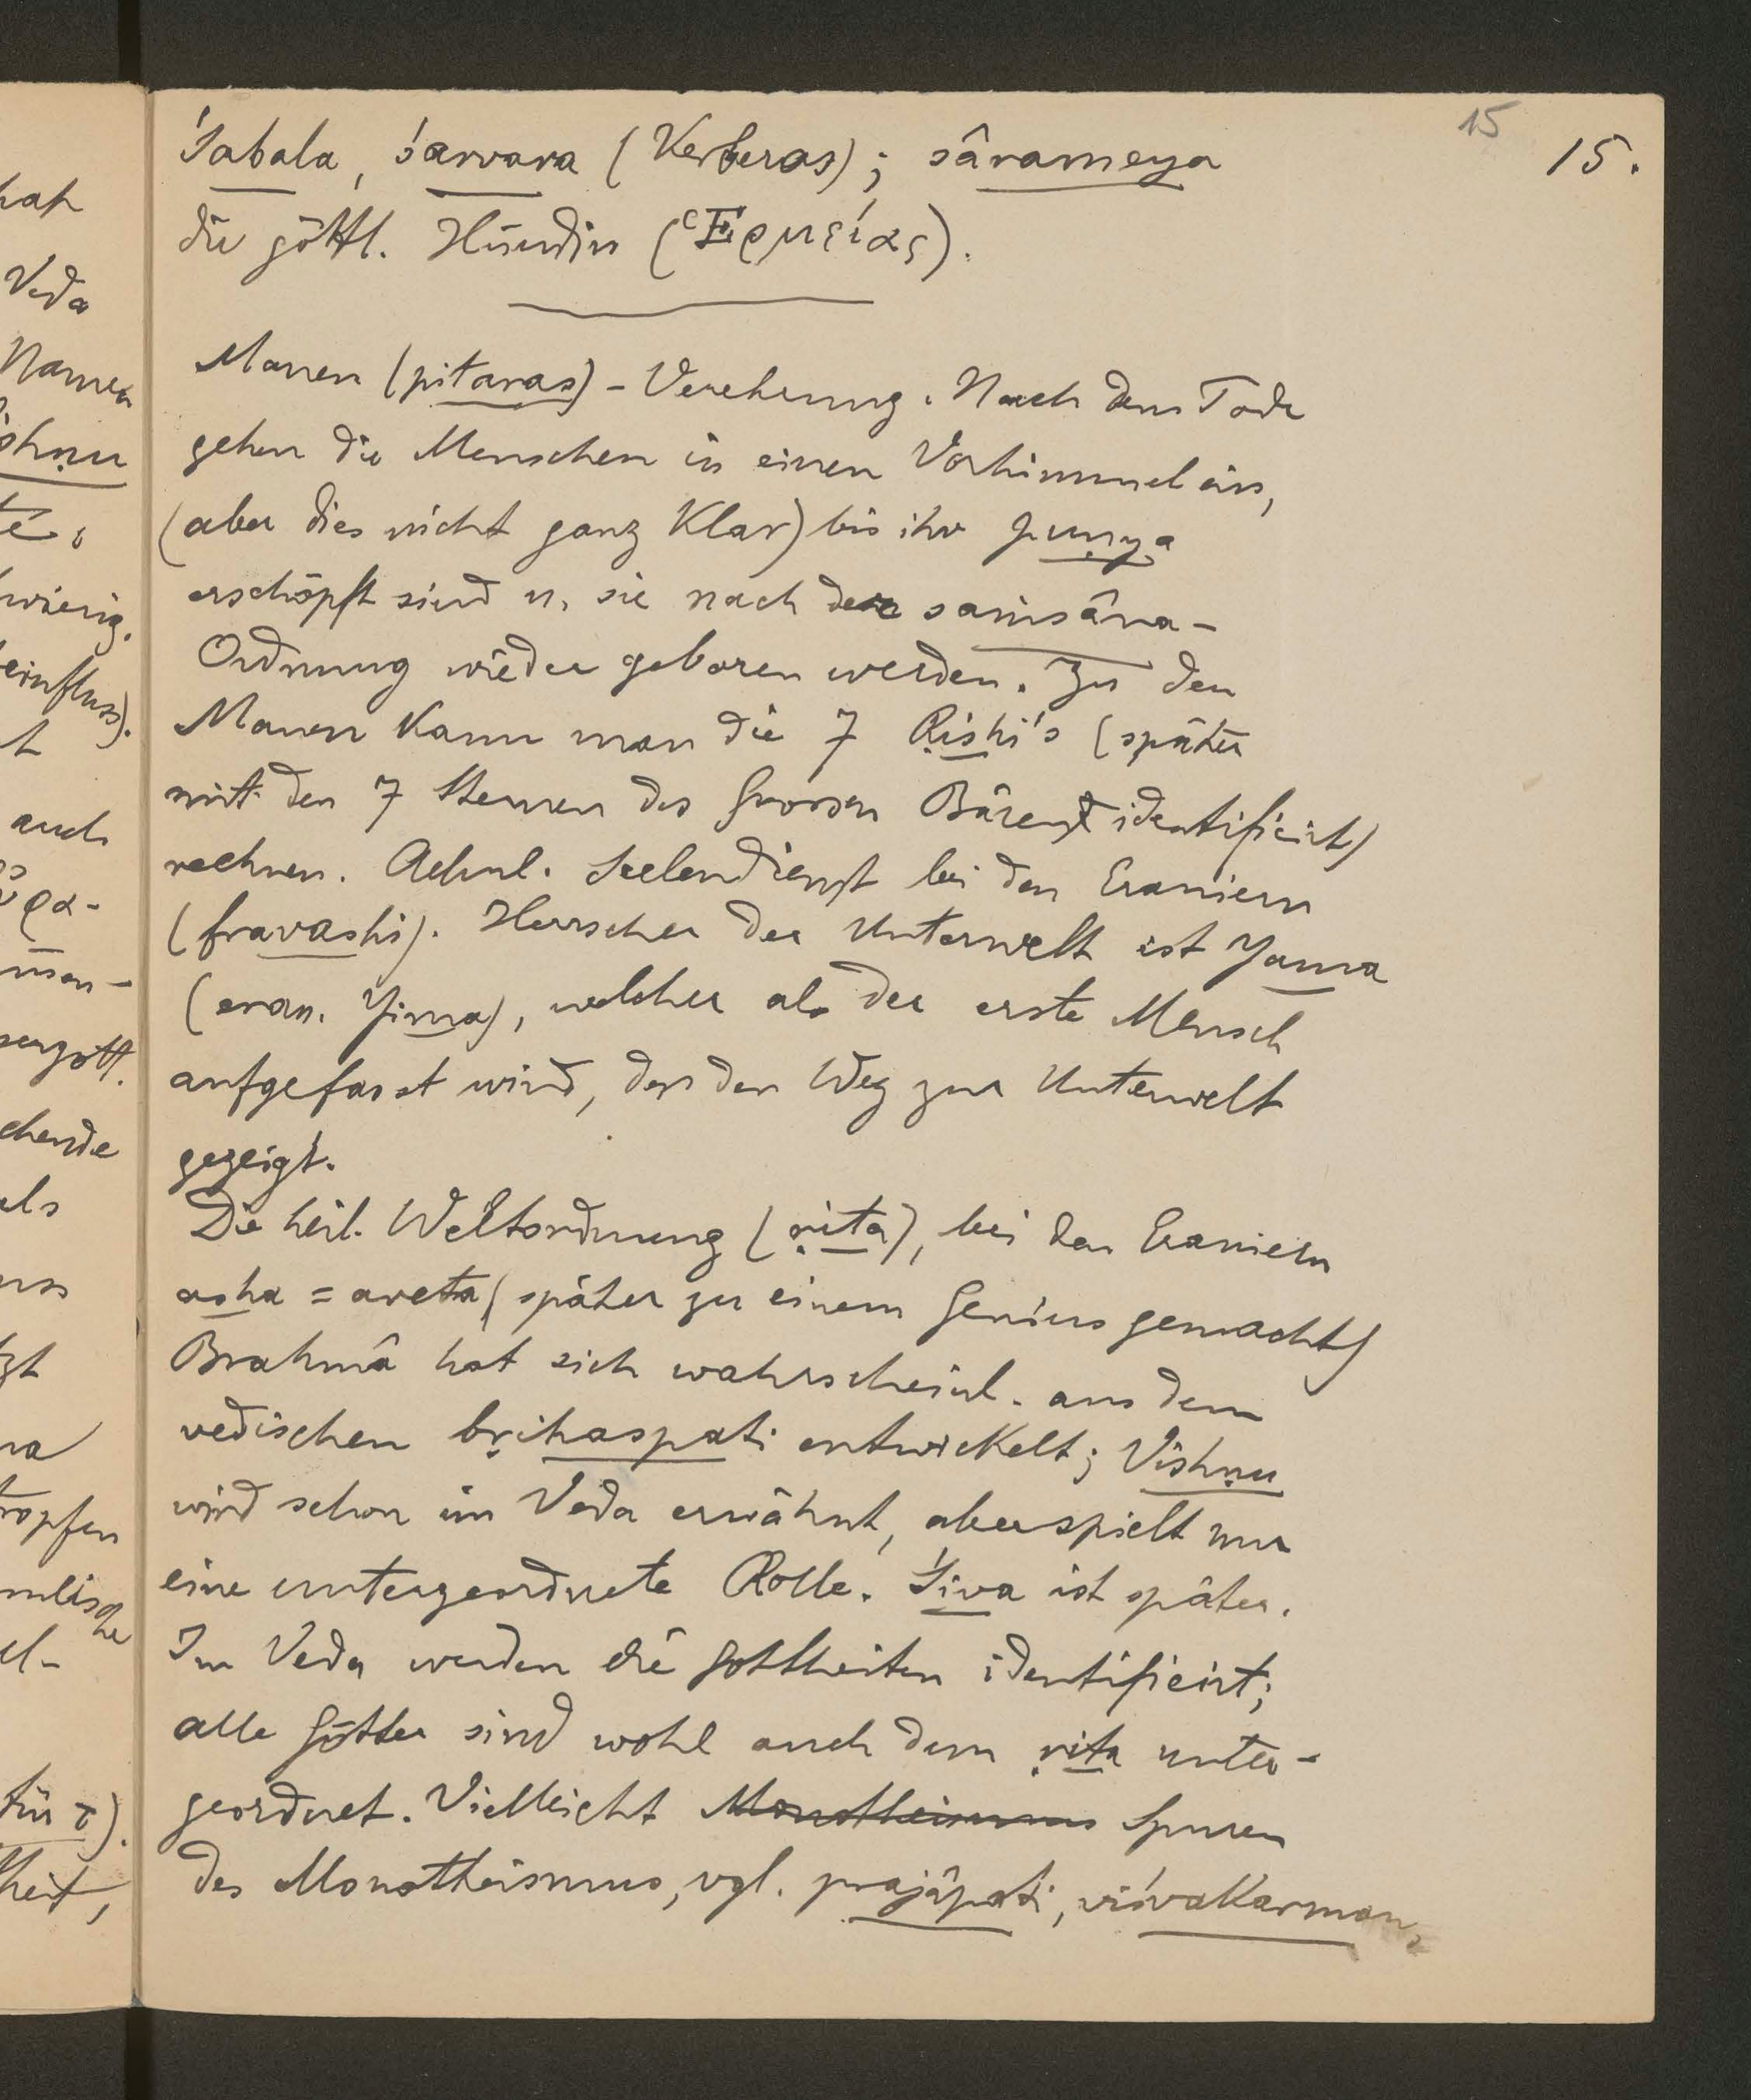 15
15.
Śabala, śarvara (Kerberos); sârameya
die göttl. Hündin (Ἑρμείας).
Manen (pitaras)-Verehrung. Nach dem Tode
gehen die Menschen in einen Vorhimmel ein,
(aber dies nicht ganz klar) bis ihr puṇya
erschöpft sind u. sie nach der saṁsâra-
Ordnung wieder geboren werden. Zu den
Manen kann man die 7 Ṛishi's (später
mit den 7 Sternen des Grossen Bären identificirt)
rechnen. Aehnl. Seelendienst bei den Eraniern
(fravashi). Herrscher der Unterwelt ist Yama
(eran. Yima), welcher als der erste Mensch
aufgefasst wird, der den Weg zur Unterwelt
gezeigt.
Die heil. Weltordnung (ṛita), bei den Eraniern
asha = areta (später zu einem Genius gemacht)
Brahmâ hat sich wahrscheinl. aus dem
vedischen bṛihaspati entwickelt; Vishṇu
wird schon im Veda erwähnt, aber spielt nur
eine untergeordnete Rolle. Śiva ist später.
Im Veda werden die Gottheiten identificirt;
alle Götter sind wohl auch dem ṛita unter-
geordnet. Vielleicht Monotheismus Spuren
des Monotheismus, vgl. prajâpati, viśvakarman,
Veda
Namen
ishṇu
té.
wierig.
einfluss).
t
auch
ρα-
men-
chende
als
uss
zt
na
ropfen
mlische
el-
für τ).
heit,